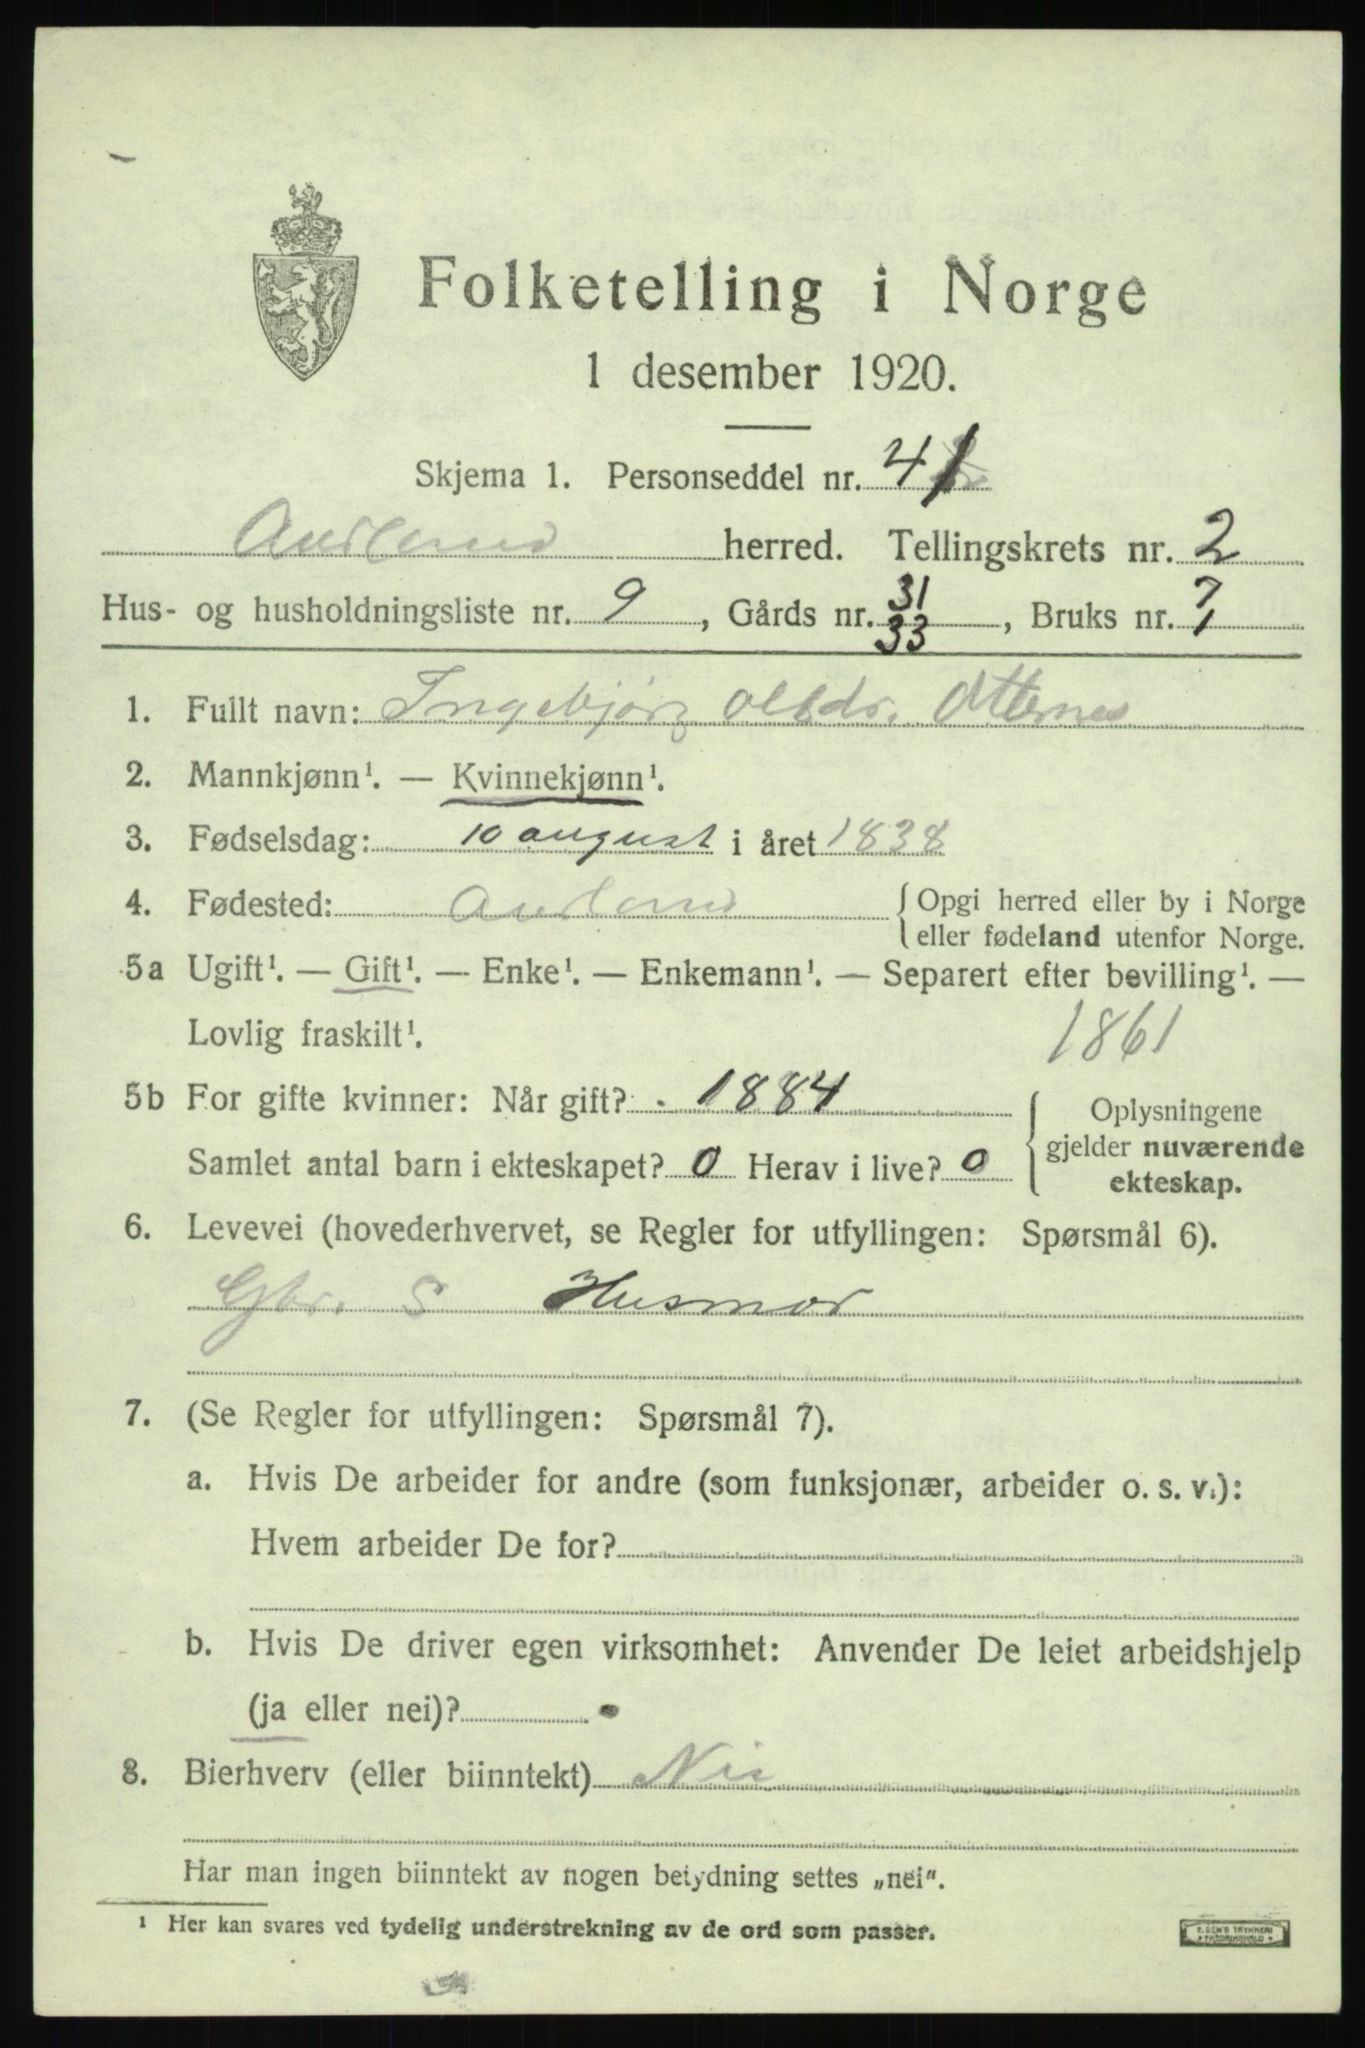 Folketelling i Norge
1 desember 1920.
Skjema 1. Personseddel nr. 41
Aurland herred. Tellingskrets nr. 2
Hus- og husholdningsliste nr. 9, Gårds nr. 31/33, Bruks nr. 7/1
1. Fullt navn: Ingebjörg Olsdr. Otternes
2. Mannkjønn¹. — Kvinnekjønn¹.
3. Fødselsdag: 10 august i året 1838
4. Fødested: Aurland { Opgi herred eller by i Norge
eller fødeland utenfor Norge.
5a Ugift¹. — Gift¹. — Enke¹. — Enkemann¹. — Separert efter bevilling¹. —
Lovlig fraskilt¹. 1861
5b For gifte kvinner: Når gift? 1884
Samlet antal barn i ekteskapet? 0 Herav i live? 0
Oplysningene
gjelder nuværende
ekteskap.
6. Levevei (hovederhvervet, se Regler for utfyllingen: Spørsmål 6).
Gbr. S Husmor
7. (Se Regler for utfyllingen: Spørsmål 7).
a. Hvis De arbeider for andre (som funksjonær, arbeider o. s. v.):
Hvem arbeider De for?
b. Hvis De driver egen virksomhet: Anvender De leiet arbeidshjelp
(ja eller nei)?
8. Bierhverv (eller biinntekt) Nei
Har man ingen biinntekt av nogen betydning settes „nei“.
¹ Her kan svares ved tydelig understrekning av de ord som passer.
E. SEM'S TRYKKERI
FREDRIKSHALD